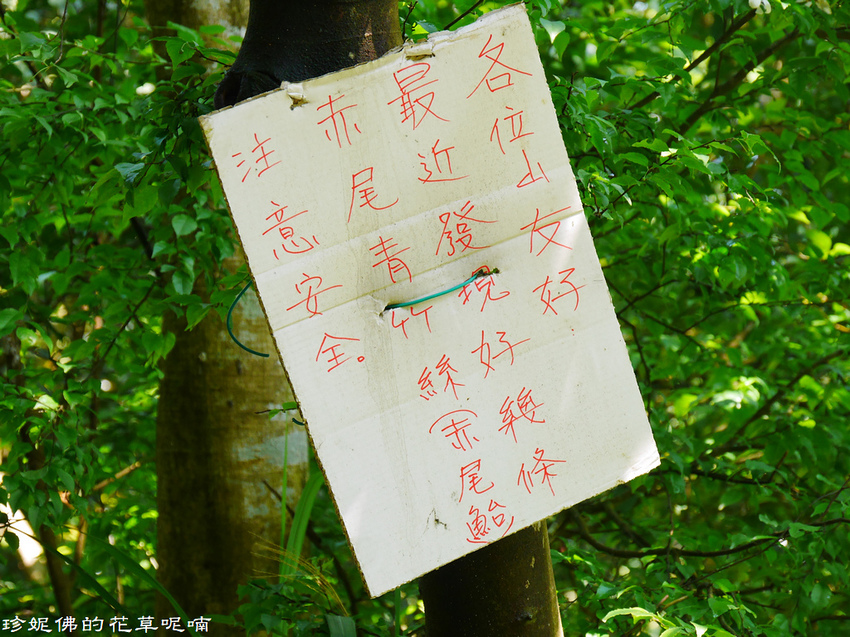 各位山友好
最近發現好幾條
赤尾青竹絲(赤尾鮐)
注意安全。
珍妮佛的花草呢喃